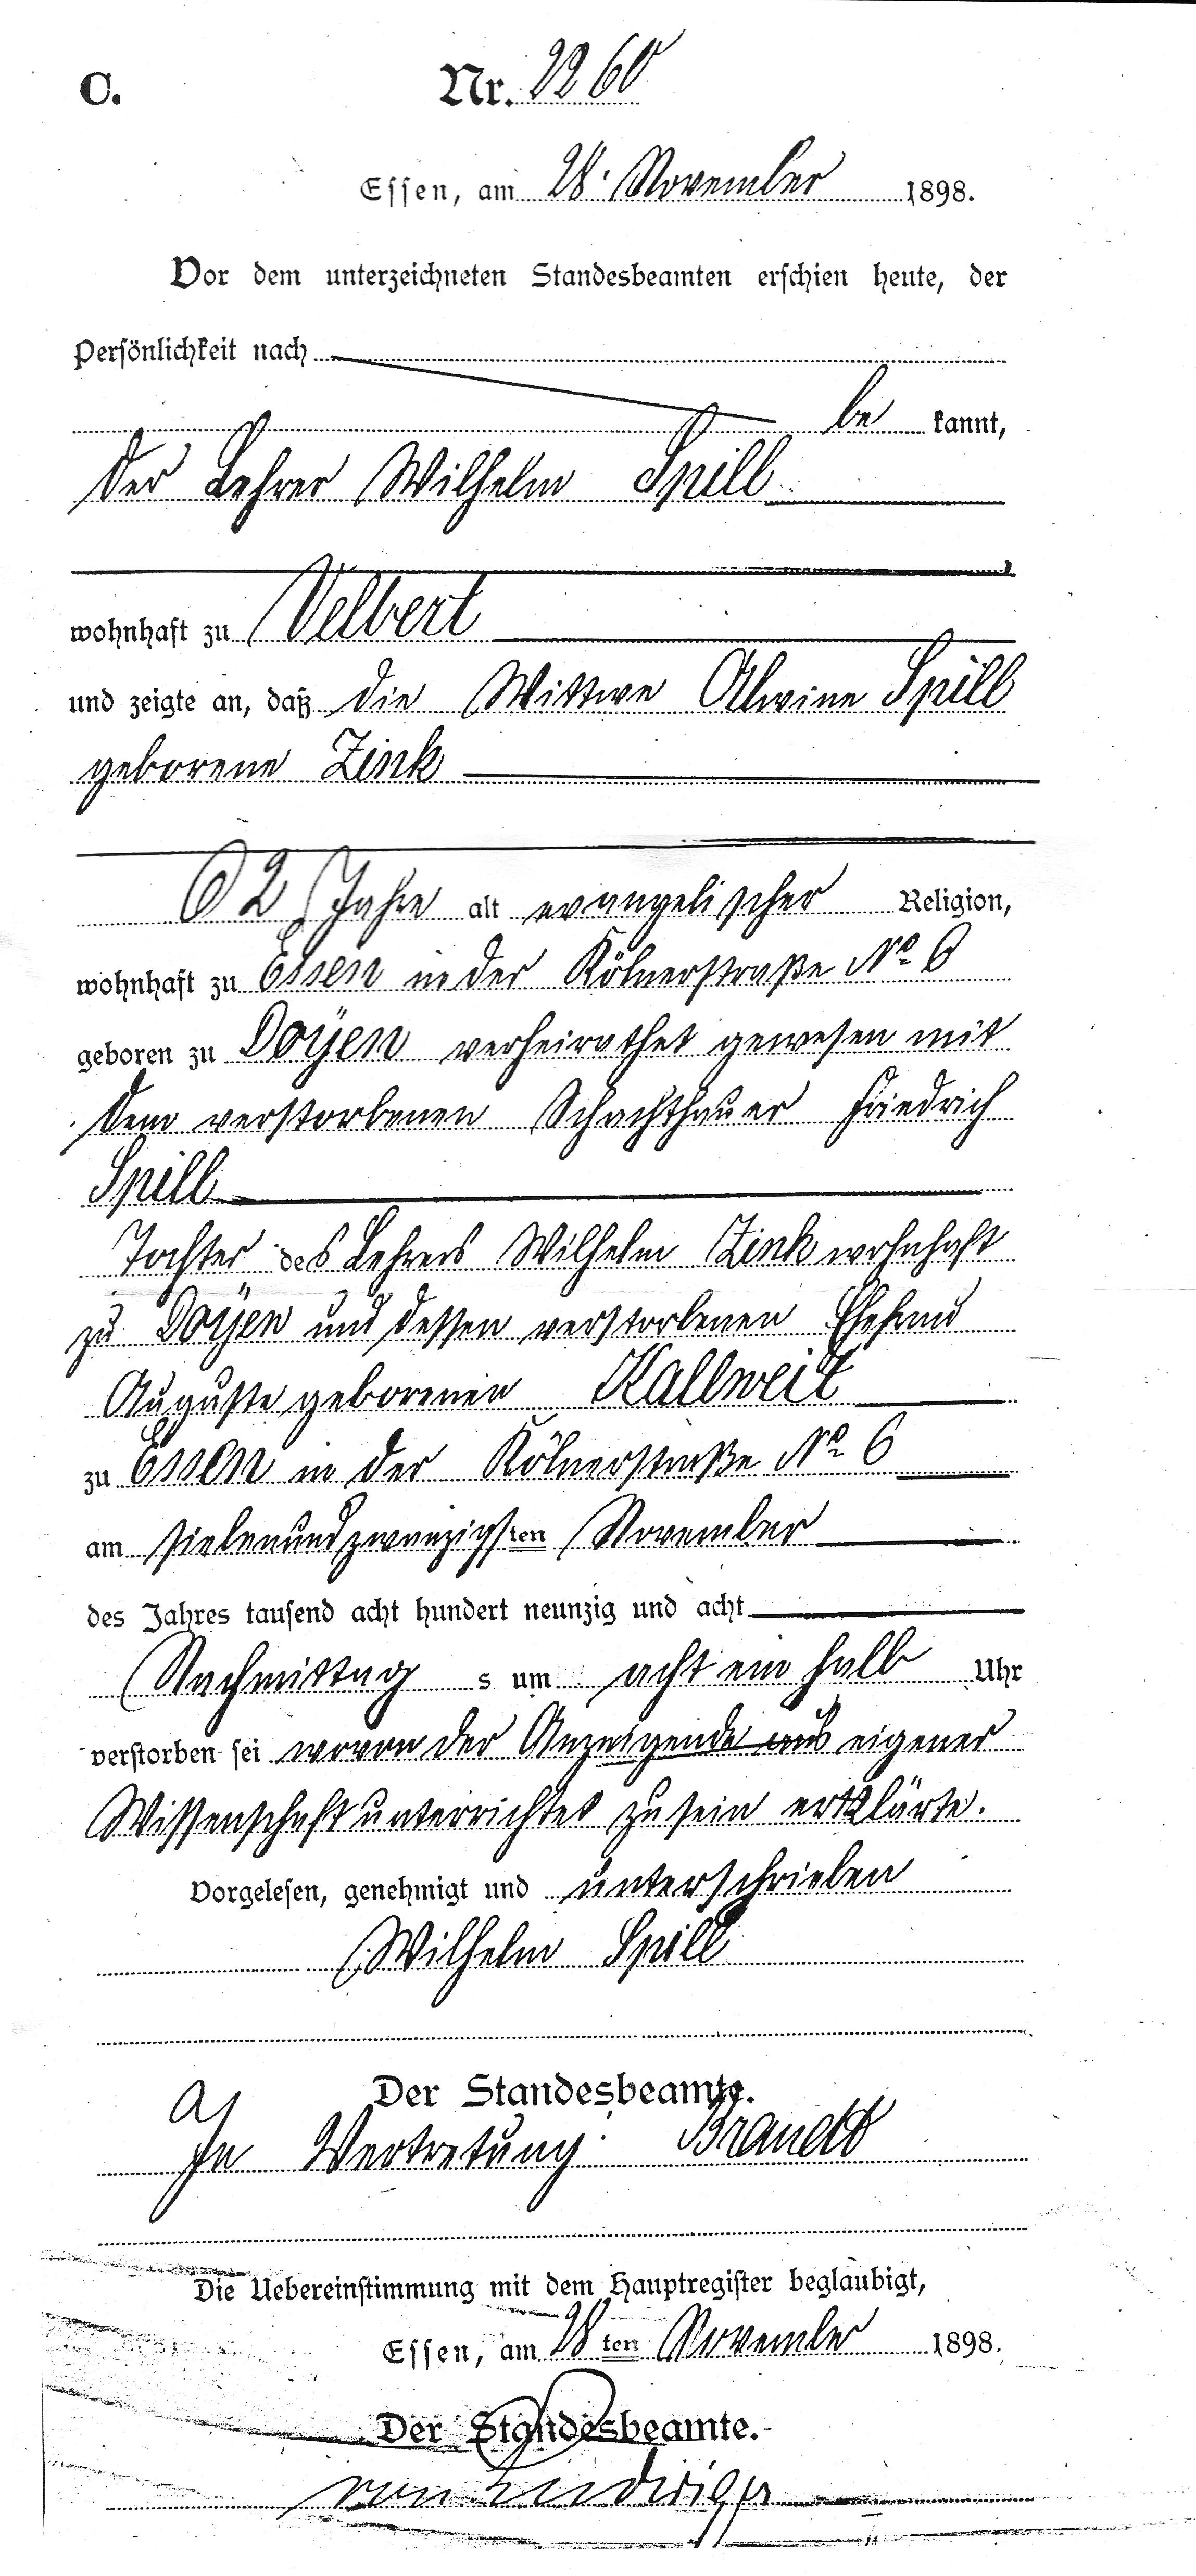 C. Nr. 2260
Essen, am 28. November 1898.
Vor dem unterzeichneten Standesbeamten erschien heute, der
Persönlichkeit nach
be kannt,
der Lehrer Wilhelm Spill
wohnhaft zu Velbert
und zeigte an, daß die Wittwe Alwine Spill
geborene Zink
62 Jahre alt evangelischer Religion,
wohnhaft zu Essen in der Kölnerstraße No 6
geboren zu Doyen verheirathet gewesen mit
dem verstorbenen Schachthauer Friedrich
Spill
Tochter des Lehrers Wilhelm Zink wohnhaft
zu Doyen und dessen verstorbenen Ehefrau
Auguste geborenen Kallweit
zu Essen in der Kölnerstraße No 6
am siebenundzwanzigsten November
des Jahres tausend acht hundert neunzig und acht
Nachmittag s um acht ein halb Uhr
verstorben sei wovon der Anzeigende aus eigener
Wissenschaft unterrichtet zu sein erklärte.
Vorgelesen, genehmigt und unterschrieben
Wilhelm Spill
Der Standesbeamte.
In Vertretung:
Die Uebereinstimmung mit dem Hauptregister beglaubigt,
Essen, am 28ten November 1898.
Der Standesbeamte.